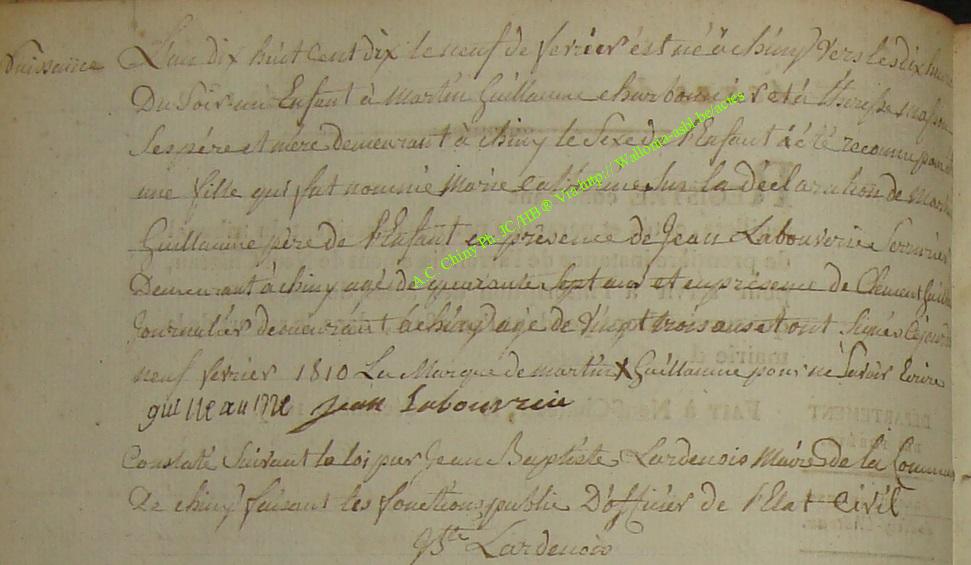 Naissance
L'an dix huit Cent dix le neuf de fevrier est né à chiny vers les dix heures
Du Soir un Enfant à Martin Guillaume charbonnier et à Therese
Ses père et mère demeurant à chiny le Sexe de l'Enfant a été reconnu pour
une fille qui fut nommée Marie Catherine Sur la Déclaration de Martin
Guillaume père de l'Enfant en présence de Jean Labouverie Serrurier
Demeurant à chiny agé de quarante Sept ans et en présence de Clement Guillaume
Journalier demeurant à chiny age de vingt trois ans et ont Signés Cejourd
neuf fevrier 1810 La Marque de martin X Guillaume pour ne Savoir Ecrire
guilleaume Jean Labouvrie
Constaté Suivant la loi par Jean Baptiste Lardenois Maire de la Commune
De chiny faisant les fonctions public D'officier de l'Etat Civil
Lardenois
A.C. Chiny Ph. JC/HB® Via http://Wallonia-asbl.be/actes